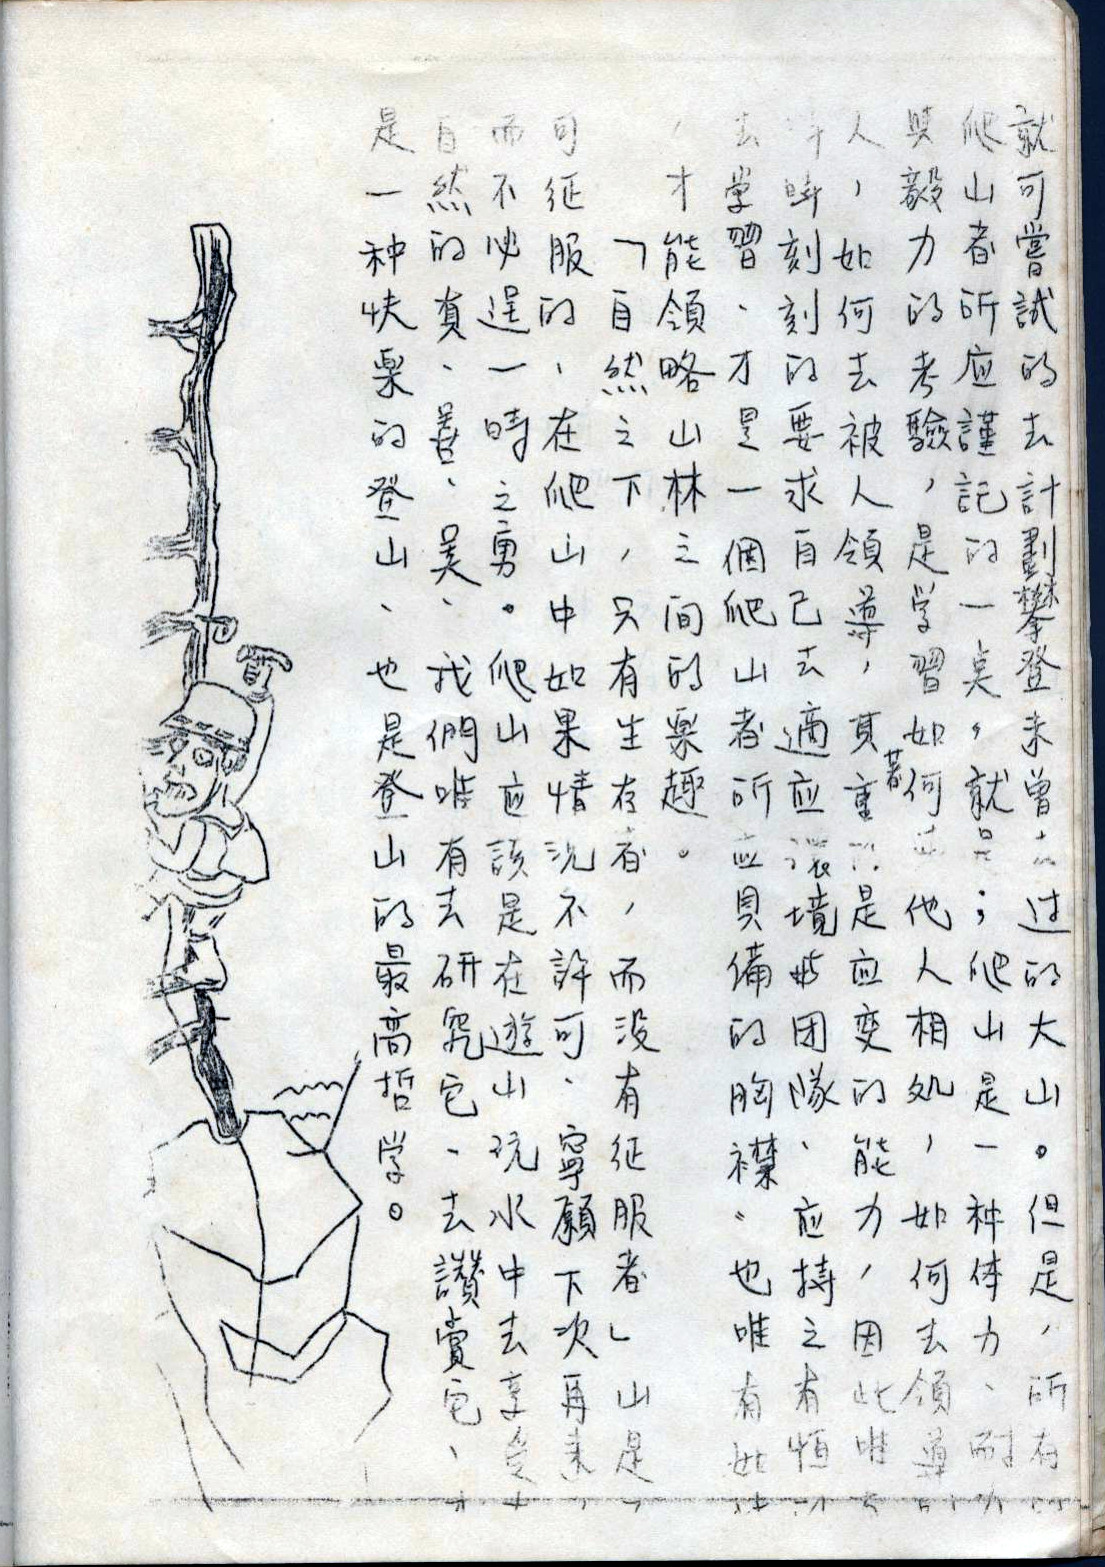 就可嘗試的去計劃攀登未曾去过的大山。但是,所有
爬山者所应謹記的一点,就是;爬山是一种体力、耐
與毅力的考驗,是学習如何 他人相処,如何去領導
人,如何去被人領導,其着重 是应变的能力,因此唯
時時刻刻的要求自己去適应環境與团隊、应持之有恒
去学習、才是一個爬山者所应具備的胸襟、也唯有如
,才能領略山林之间的樂趣。
「自然之下,只有生存者,而没有征服者」山是
可征服的、在爬山中如果情况不許可、寧願下次再来
而不必逞一時之勇。爬山应該是在遊山玩水中去享受
自然的真、善、美、我們唯有去研究它、去讚賞它、
是一种快樂的登山、也是登山的最高哲学。